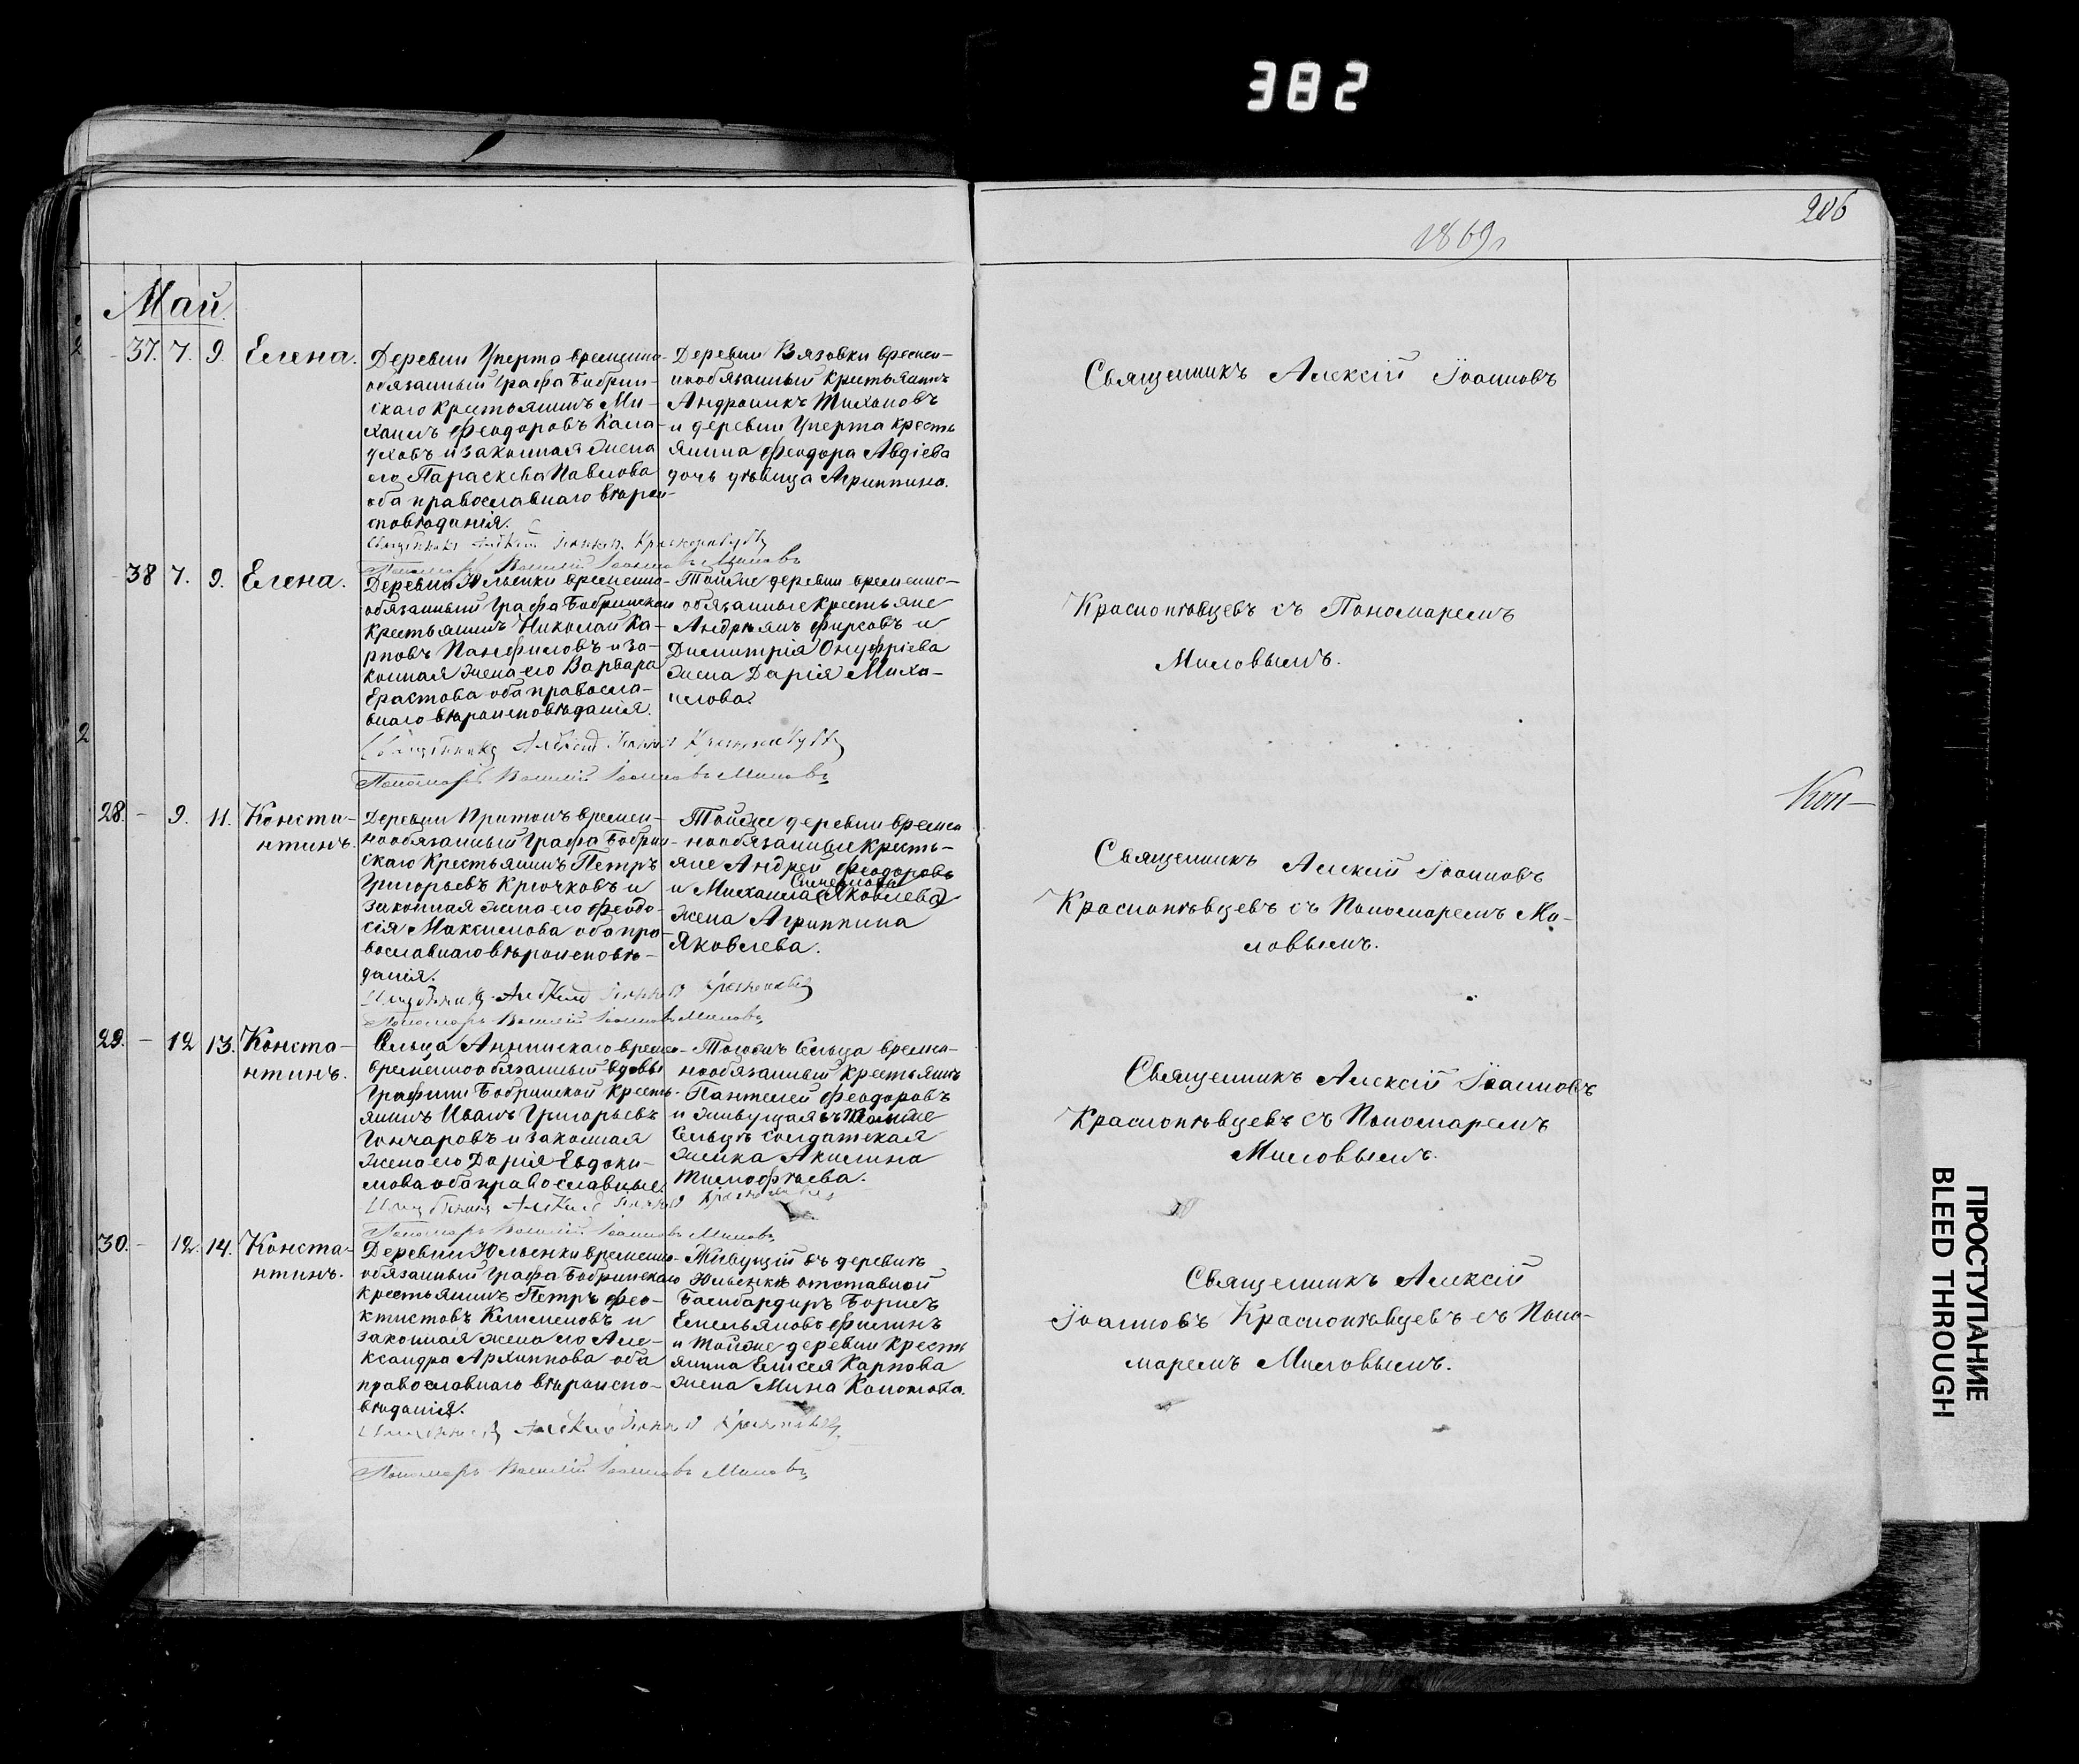 382
206
1869 г
Май.
37. 7. 9. Елена.
Деревни Уперта временно-
обязанный Графа Бобрин-
скаго Крестьянинъ Ми-
хаилъ Феодоровъ
и законная жена
его Параскева Павлова
оба православнаго вѣрои-
споведанія.
Деревни Вязовки времен-
нообязанный Крестьянинъ
Андроникъ Тихоновъ
и деревни Уперта кресть
янина Феодора Авдіева
дочь дѣвица Агриппина.
Священникъ Алексій Іоанновъ
Пономарь Василій Іоанновъ Миловъ
38 7. 9. Елена.
Деревни Юльенки временно-
обязанный Графа Бобринскаго
Крестьянинъ Николай Ка-
рповъ Панфиловъ и за-
конная жена его Варвара
Ерастова оба правосла-
внаго вѣроисповѣданія.
Тойже деревни временно-
обязанные крестьяне
Андреянъ Фирсовъ и
Димитрія Онуфріева
жена Дарія Миха-
илова.
Краснопѣвцевъ съ Пономаремъ
Миловымъ.
Священникъ Алексій Іоанновъ Краснопѣвцевъ
Пономарь Василій Іоанновъ Миловъ
2
28. - 9. 11. Конста-
нтинъ.
Деревни Притонъ времен-
нообязанный Графа Бобрин-
скаго Крестьянинъ Петръ
Григорьевъ Крючковъ и
законная жена его Феодо-
сія Максимова оба пра-
вославнаго вѣроисповѣ-
данія.
Тойже деревни времен
нообязанные Кресть-
яне Андрей Феодоровъ
и Михаила (Яковлева)
жена Агриппина
Яковлева.
Кон-
Священникъ Алексій Іоанновъ
Краснопѣвцевъ съ Пономаремъ Ми-
ловымъ.
Священникъ Алексій Іоанновъ Краснопѣвцевъ
Пономарь Василій Іоанновъ Миловъ
29. - 12 13. Конста-
нтинъ.
Сельца Аннинскаго време-
временнообязанный вдовы
Графини Бобринской Кресть-
янинъ Иванъ Григорьевъ
Гончаровъ и законная
жена его Дарія Евдоки-
мова оба православные.
Тогожъ Сельца времен-
нообязанный Крестьянинъ
Пантелей Феодоровъ
и живущая въ томже
Сельцѣ солдатская
женка Акилина
Тимофѣева.
Священникъ Алексій Іоанновъ
Краснопѣвцевъ съ Пономаремъ
Миловымъ.
Священникъ Алексій Іоанновъ Краснопѣвцевъ
Пономарь Василій Іоанновъ Миловъ
30. - 12. 14. Конста-
нтинъ.
Деревни Юльенки временно-
обязанный Графа Бобринскаго
Крестьянинъ Петръ Фео-
ктистовъ Клименовъ и
законная жена его Але-
ксандра Архиппова оба
православнаго вѣроиспо-
вѣданія.
Живущій въ деревнѣ
Юльенкѣ отставной
Бомбардиръ Борисъ
Емельяновъ Филинъ
и тойже деревни Кресть
янина Елисея Карпова
жена Мина Кононова.
Священникъ Алексій
Іоанновъ Краснопѣвцевъ съ Поно-
маремъ Миловымъ.
Священникъ Алексій Іоанновъ Краснопѣвцевъ
Пономарь Василій Іоанновъ Миловъ
ПРОСТУПАНИЕ
BLEED THROUGH